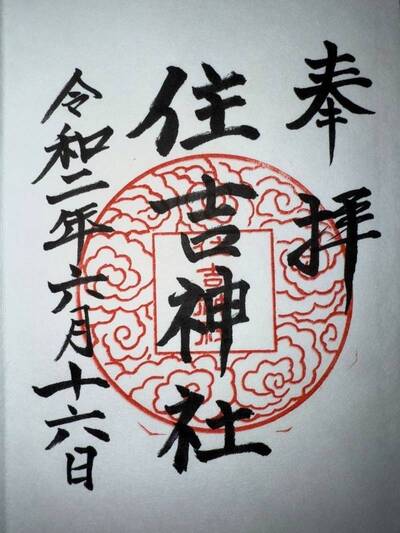 奉拝
住吉神社
令和二年六月十六日